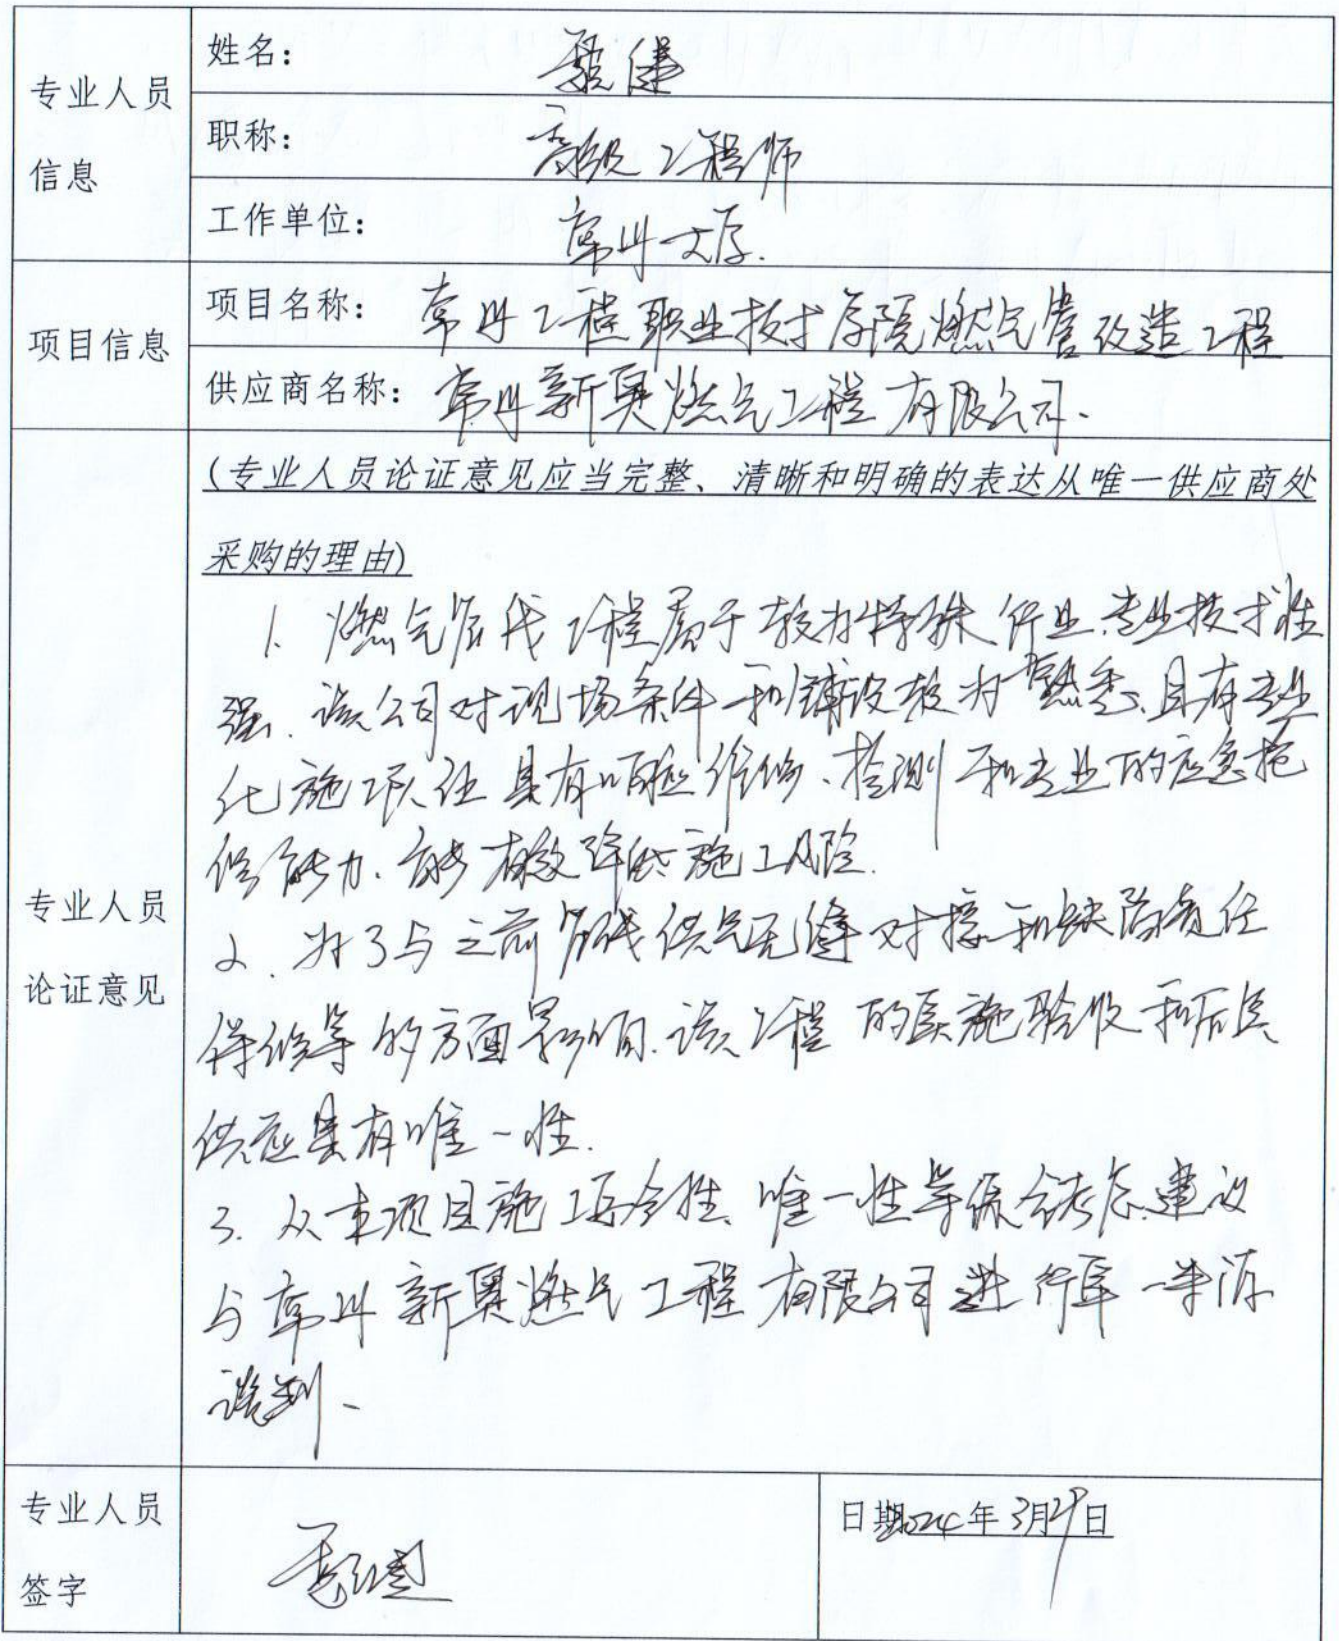 专业人员
信息
姓名：
职称：高级工程师
工作单位：常州大学.
项目信息
项目名称：常州工程职业技术学院燃气管改造工程
供应商名称：常州新奥燃气工程有限公司.
专业人员
论证意见
(专业人员论证意见应当完整、清晰和明确的表达从唯一供应商处
采购的理由)
1. 燃气管线工程属于较为特殊行业,专业技术性
强. 该公司对现场条件和铺设较为熟悉、且有专业
化施工队伍具有 维修、检测和专业的应急抢
修能力、能有效降低施工风险.
2. 为了与之前管线供气无缝对接和缺陷责任
保修等的方面影响.该工程的实施验收和后期
供应具有唯一性.
3. 从本项目施工安全性、唯一性等综合考虑.建议
与常州新奥燃气工程有限公司进行单一来源
谈判、
专业人员
签字
日期2024年3月29日